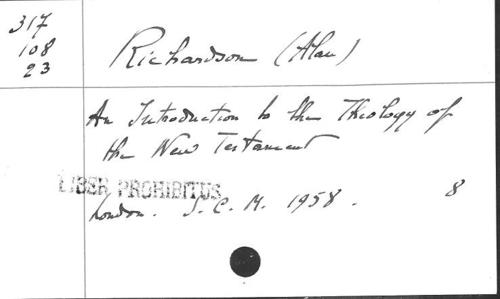 317
108
23
Richardson (Alan)
An Introduction to the Theology of
the New Testament
LIBER PROHIBITUS
London. S.C.M. 1958. 8